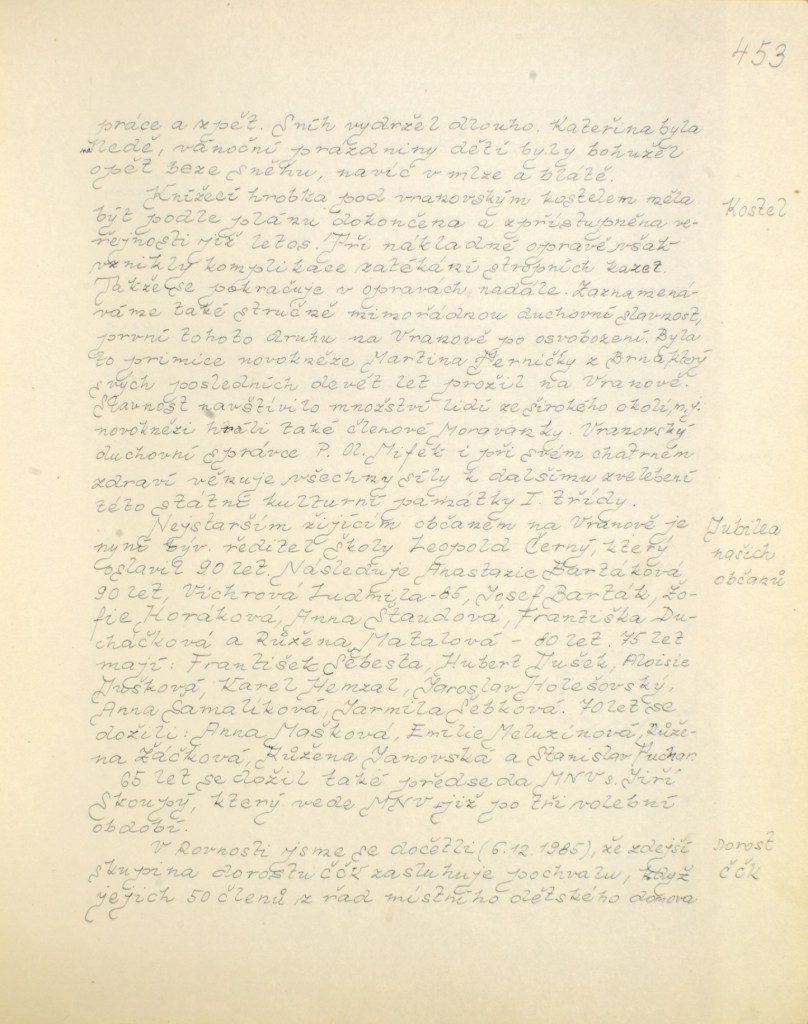 453
práce a zpět. Sníh vydržel dlouho. Kateřina byla
ledě, vánoční prázdniny dětí byly bohužel
opět beze sněhu, navíc v mlze a blátě.
Knížecí hrobka pod vranovským kostelem měla
Kostel
být podle plánu dokončena a zpřístupněna ve-
řejnosti již letos. Při nákladné opravě však
vznikly komplikace zatékání stropních kazet.
Takže se pokračuje v opravách nadále. Zaznamená-
váme také stručně mimořádnou duchovní slavnost,
první tohoto druhu na Vranově po osvobození. Byla
to primice novokněze Martina z Brna, který
svých posledních devět let prožil na Vranově.
Slavnost navštívilo množství lidí ze širokého okolí, m.j.
novoknězi hráli také členové Moravanky. Vranovský
duchovní správce P. Ol. Mifek i při svém chatrném
zdraví věnuje všechny síly k dalšímu zvelebení
této státní kulturní památky I. třídy.
Nejstarším žijícím občanem na Vranově je
Jubilea
nyní býv. ředitel školy Leopold Černý, který
našich
oslavil 90 let. Následuje Anastazie Bartáková
občanů
90 let, Vichrová Ludmila-85, Josef Barták, Žo-
fie Horáková, Anna Štaudová, Františka Du-
cháčková a Růžena Matalová - 80 let. 75 let
mají: František Šebesta, Hubert Dušek, Aloisie
Dušková, Karel Hemzal, Jaroslav Holešovský,
Anna Samalíková, Jarmila Šebková. 70 let se
dožili: Anna Mašková, Emilie Meluzínová, Růže-
na Žáčková, Růžena Janovská a Stanislav Puchar.
65 let se dožil také předseda MNV s. Jiří
Skoupý, který vede MNV již po tři volební
období.
V Rovnosti jsme se dočetli (6.12.1985), že zdejší
Dorost
skupina dorostu ČČK zasluhuje pochvalu, když
ČČK
jejich 50 členů z řad místního dětského domova